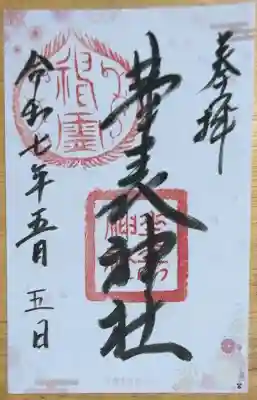 奉拝
華表神社
令和七年五月五日